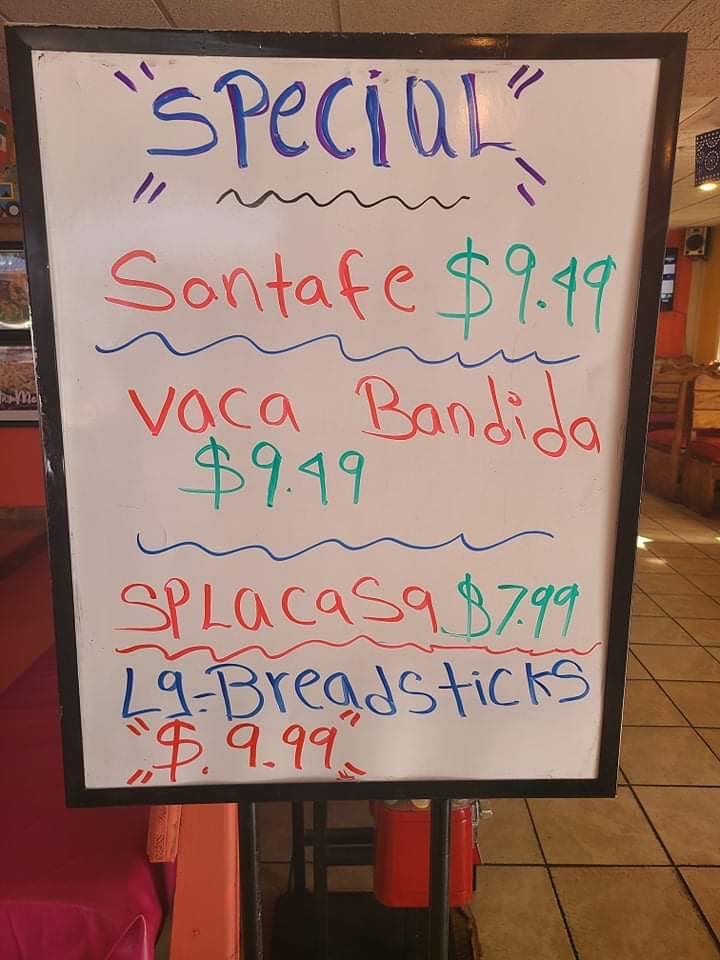 "SPeciaL"
Santafe $9.49
Vaca Bandida
$9.49
SPLacaSa $7.99
Lg-Breadsticks
"$.9.99"